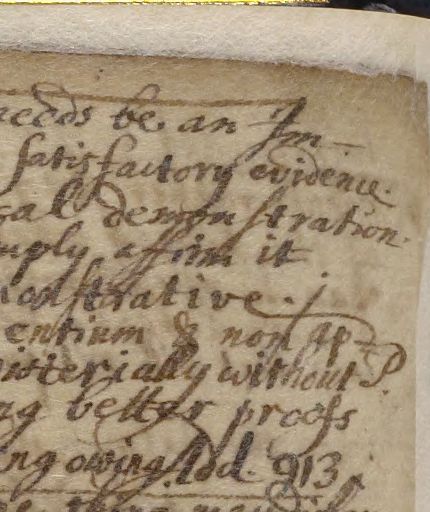 needs be an Im-
satisfactory evidence.
cal demonstration.
mply affirm it
onstrative.
entium & non ap-
isterially without
ng better proofs
ing owing. Add. 913